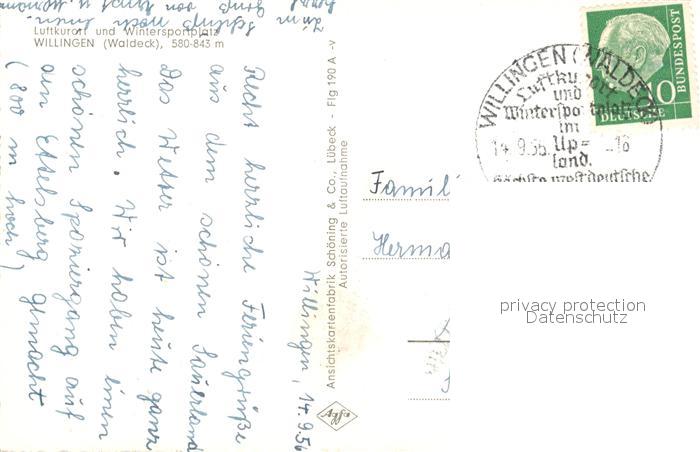 Luftkurort und Wintersportplatz
WILLINGEN (Waldeck), 580-843 m
Willingen, 14.9.56
Recht herrliche Feriengrüße
aus dem schönen Sauerland
Das Wetter ist heute ganz
herrlich. Wir haben einen
schönen Spaziergang auf
am Ettelsberg gemacht
(800 m hoch)
Zum Schluß noch
Gruß von
Ansichtskartenfabrik Schöning & Co., Lübeck - Flg 190 A -v
Autorisierte Luftaufnahme
Agfa
Famil
Herma
DEUTSCHE
BUNDESPOST
10
WILLINGEN (WALDECK)
Luftkurort
und
Wintersportplatz
im
Up=
land.
14.9.56.-18
höchste westdeutsche
privacy protection
Datenschutz